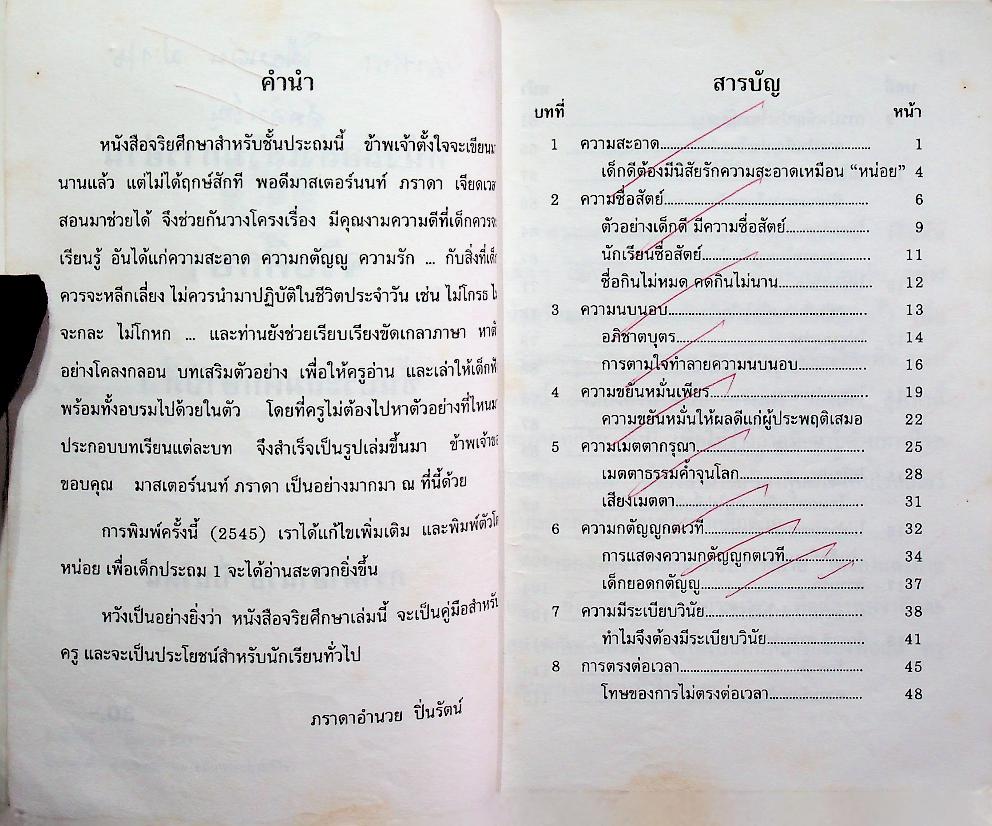 คำนำ
หนังสือจริยศึกษาสำหรับชั้นประถมนี้ ข้าพเจ้าตั้งใจจะเขียน
นานแล้ว แต่ไม่ได้ฤกษ์สักที พอดีมาสเตอร์นนท์ ภราดา เจียดเวล
สอนมาช่วยได้ จึงช่วยกันวางโครงเรื่อง มีคุณงามความดีที่เด็กควร
เรียนรู้ อันได้แก่ความสะอาด ความกตัญญู ความรัก ... กับสิ่งที่เด็
ควรจะหลีกเลี่ยง ไม่ควรนำมาปฏิบัติในชีวิตประจำวัน เช่น ไม่โกรธ
จะกละ ไม่โกหก ... และท่านยังช่วยเรียบเรียงขัดเกลาภาษา หาตั
อย่างโคลงกลอน บทเสริมตัวอย่าง เพื่อให้ครูอ่าน และเล่าให้เด็กฟั
พร้อมทั้งอบรมไปด้วยในตัว โดยที่ครูไม่ต้องไปหาตัวอย่างที่ไหน
ประกอบบทเรียนแต่ละบท จึงสำเร็จเป็นรูปเล่มขึ้นมา ข้าพเจ้าขอ
ขอบคุณ มาสเตอร์นนท์ ภราดา เป็นอย่างมากมา ณ ที่นี้ด้วย
การพิมพ์ครั้งนี้ (2545) เราได้แก้ไขเพิ่มเติม และพิมพ์ตัวโต
หน่อย เพื่อเด็กประถม 1 จะได้อ่านสะดวกยิ่งขึ้น
หวังเป็นอย่างยิ่งว่า หนังสือจริยศึกษาเล่มนี้ จะเป็นคู่มือสำหรับ
ครู และจะเป็นประโยชน์สำหรับนักเรียนทั่วไป
ภราดาอำนวย ปิ่นรัตน์
สารบัญ
บทที่ หน้า
1 ความสะอาด 1
เด็กดีต้องมีนิสัยรักความสะอาดเหมือน “หน่อย” 4
2 ความซื่อสัตย์ 6
ตัวอย่างเด็กดี มีความซื่อสัตย์ 9
นักเรียนซื่อสัตย์ 11
ซื่อกินไม่หมด คดกินไม่นาน 12
3 ความนบนอบ 13
อภิชาตบุตร 14
การตามใจทำลายความนบนอบ 16
4 ความขยันหมั่นเพียร 19
ความขยันหมั่นให้ผลดีแก่ผู้ประพฤติเสมอ 22
5 ความเมตตากรุณา 25
เมตตาธรรมค้ำจุนโลก 28
เสียงเมตตา 31
6 ความกตัญญูกตเวที 32
การแสดงความกตัญญูกตเวที 34
เด็กยอดกตัญญู 37
7 ความมีระเบียบวินัย 38
ทำไมจึงต้องมีระเบียบวินัย 41
8 การตรงต่อเวลา 45
โทษของการไม่ตรงต่อเวลา 48